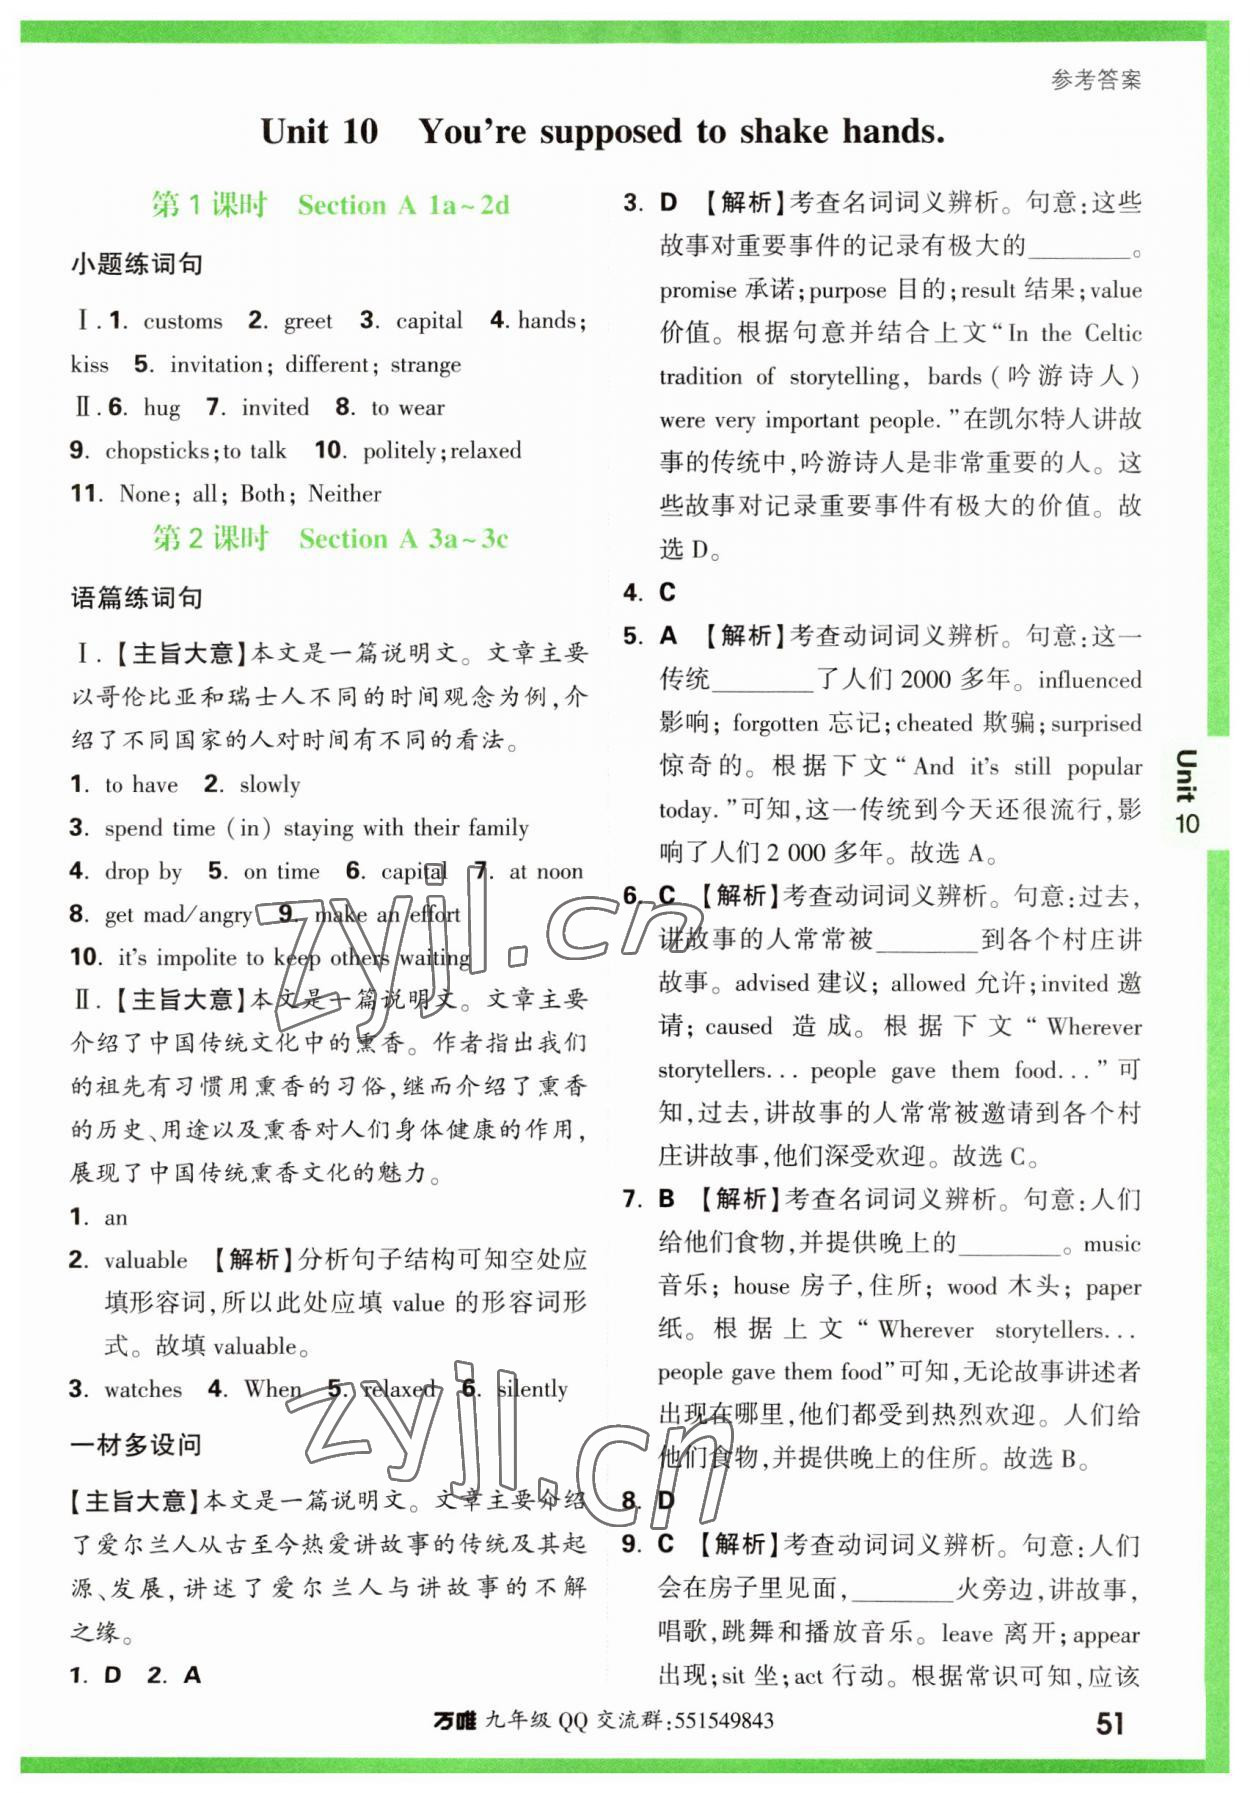 参考答案
Unit 10 You're supposed to shake hands.
第1课时 Section A 1a~2d
小题练词句
Ⅰ.1. customs 2. greet 3. capital 4. hands;
kiss 5. invitation; different; strange
Ⅱ.6. hug 7. invited 8. to wear
9. chopsticks;to talk 10. politely;relaxed
11. None; all; Both; Neither
第2课时 Section A 3a~3c
语篇练词句
Ⅰ.【主旨大意】本文是一篇说明文。文章主要
以哥伦比亚和瑞士人不同的时间观念为例,介
绍了不同国家的人对时间有不同的看法。
1. to have 2. slowly
3. spend time (in) staying with their family
4. drop by 5. on time 6. capital 7. at noon
8. get mad/angry 9. make an effort
10. it's impolite to keep others waiting
Ⅱ.【主旨大意】本文是一篇说明文。文章主要
介绍了中国传统文化中的熏香。作者指出我们
的祖先有习惯用熏香的习俗,继而介绍了熏香
的历史、用途以及熏香对人们身体健康的作用,
展现了中国传统熏香文化的魅力。
1. an
2. valuable 【解析】分析句子结构可知空处应
填形容词,所以此处应填 value 的形容词形
式。故填 valuable。
3. watches 4. When 5. relaxed 6. silently
一材多设问
【主旨大意】本文是一篇说明文。文章主要介绍
了爱尔兰人从古至今热爱讲故事的传统及其起
源、发展,讲述了爱尔兰人与讲故事的不解
之缘。
1. D 2. A
3. D 【解析】考查名词词义辨析。句意:这些
故事对重要事件的记录有极大的________。
promise 承诺;purpose 目的;result 结果;value
价值。根据句意并结合上文“In the Celtic
tradition of storytelling, bards(吟游诗人)
were very important people.”在凯尔特人讲故
事的传统中,吟游诗人是非常重要的人。这
些故事对记录重要事件有极大的价值。故
选 D。
4. C
5. A 【解析】考查动词词义辨析。句意:这一
传统________了人们 2000 多年。influenced
影响; forgotten 忘记;cheated 欺骗;surprised
惊奇的。根据下文“And it's still popular
today.”可知,这一传统到今天还很流行,影
响了人们 2 000 多年。故选 A。
6. C 【解析】考查动词词义辨析。句意:过去,
讲故事的人常常被________到各个村庄讲
故事。advised 建议; allowed 允许;invited 邀
请; caused 造成。根据下文“Wherever
storytellers... people gave them food...”可
知,过去,讲故事的人常常被邀请到各个村
庄讲故事,他们深受欢迎。故选 C。
7. B 【解析】考查名词词义辨析。句意:人们
给他们食物,并提供晚上的________。music
音乐; house 房子,住所; wood 木头; paper
纸。根据上文“Wherever storytellers...
people gave them food”可知,无论故事讲述者
出现在哪里,他们都受到热烈欢迎。人们给
他们食物,并提供晚上的住所。故选 B。
8. D
9. C 【解析】考查动词词义辨析。句意:人们
会在房子里见面,________火旁边,讲故事,
唱歌,跳舞和播放音乐。leave 离开;appear
出现;sit 坐;act 行动。根据常识可知,应该
Unit 10
万唯 九年级 QQ 交流群:551549843
51
zyjl.cn
zyjl.cn